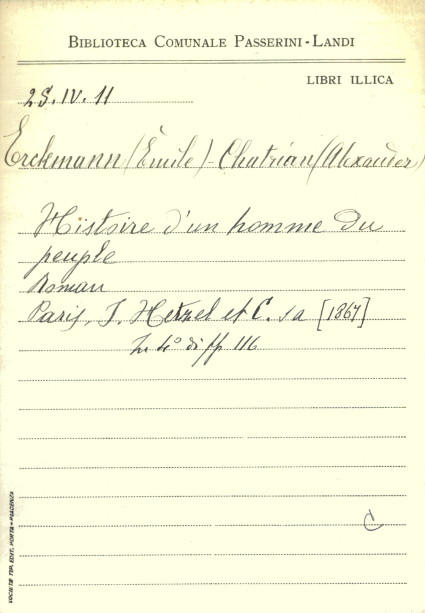 BIBLIOTECA COMUNALE PASSERINI-LANDI
LIBRI ILLICA
2S.IV.11
Erckmann (Émile)-Chatrian (Alexander)
Histoire d'un homme du
peuple
Roman
Paris, J. Hetzel et C. sa [1867]
In 4° di pp 116
C
SOCIETÀ TIP. EDIT. PORTA-PIACENZA